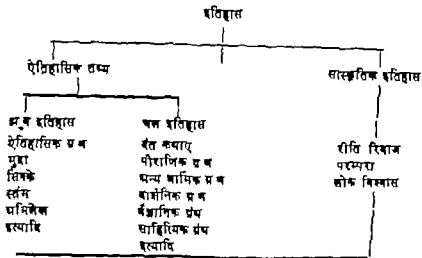 इतिहास
ऐतिहासिक तथ्य
सांस्कृतिक इतिहास
ध्रुव इतिहास
ऐतिहासिक ग्रंथ
मुद्रा
सिक्के
स्तंभ
अभिलेख
इत्यादि
चल इतिहास
दंत कथाएं
पौराणिक ग्रंथ
अन्य धार्मिक ग्रंथ
दार्शनिक ग्रंथ
वैज्ञानिक ग्रंथ
साहित्यिक ग्रंथ
इत्यादि
रीति रिवाज
परम्परा
लोक विश्वास